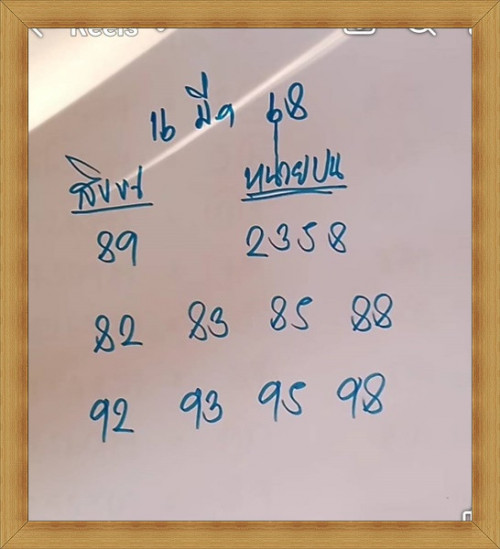 Reels
16 มีค 68
สิบบน หน่วยบน
89 2358
82 83 85 88
92 93 95 98